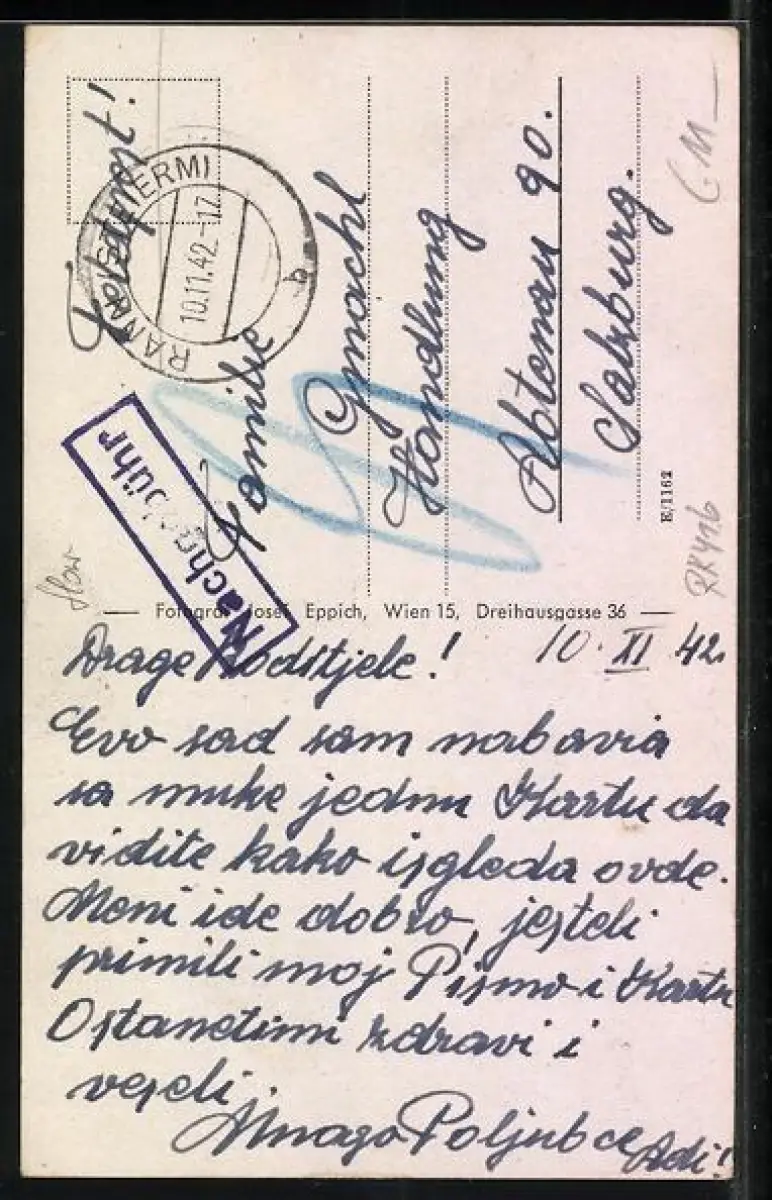 Feldpost!
RANN (STEIERM)
10.11.42.-17
b
Familie
Gmachl
Handlung
Abtenau 90.
Salzburg.
Nachgebühr
E/1162
RK416
Fotograf Josef Eppich, Wien 15, Dreihausgasse 36
10. XI 42.
Drage Rodstjele!
Evo sad sam nabavia
sa muke jednu Kartu da
vidite kako isgleda ovde.
Meni ide dobro, jesteli
primili moj Pismo i Kartu
Ostanetimi zdravi i
veseli.
Mnago Poljubce Adi!